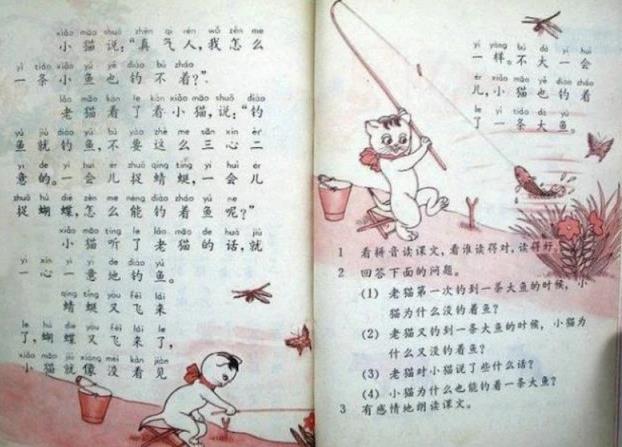 xiǎo māo shuō zhēn qì rén wǒ zěn me
小猫说：“真气人，我怎么
yì tiáo xiǎo yú yě diào bù zháo
一条小鱼也钓不着？”
lǎo māo kàn le kàn xiǎo māo shuō diào
老猫看了看小猫，说：“钓
yú jiù diào yú bú yào zhè me sān xīn èr
鱼就钓鱼，不要这么三心二
yì de yí huì ér zhuō qīng tíng yí huì ér
意的。一会儿捉蜻蜓，一会儿
zhuō hú dié zěn me néng diào zháo yú ne
捉蝴蝶，怎么能钓着鱼呢？”
xiǎo māo tīng le lǎo māo de huà jiù
小猫听了老猫的话，就
yì xīn yí yì de diào yú
一心一意地钓鱼。
qīng tíng yòu fēi lái
蜻蜓又飞来
le hú dié yòu fēi lái le
了，蝴蝶又飞来了，
xiǎo māo jiù xiàng méi kàn jiàn
小猫就像没看见
yí yàng bú dà yí huì
一样。不大一会
ér xiǎo māo yě diào zháo
儿，小猫也钓着
le yì tiáo dà yú
了一条大鱼。
1 看拼音读课文，看谁读得对，读得好。
2 回答下面的问题。
(1) 老猫第一次钓到一条大鱼的时候，小
猫为什么没钓着鱼？
(2) 老猫又钓到一条大鱼的时候，小猫为
什么又没钓着鱼？
(3) 老猫对小猫说了些什么话？
(4) 小猫为什么也能钓着一条大鱼？
3 有感情地朗读课文。